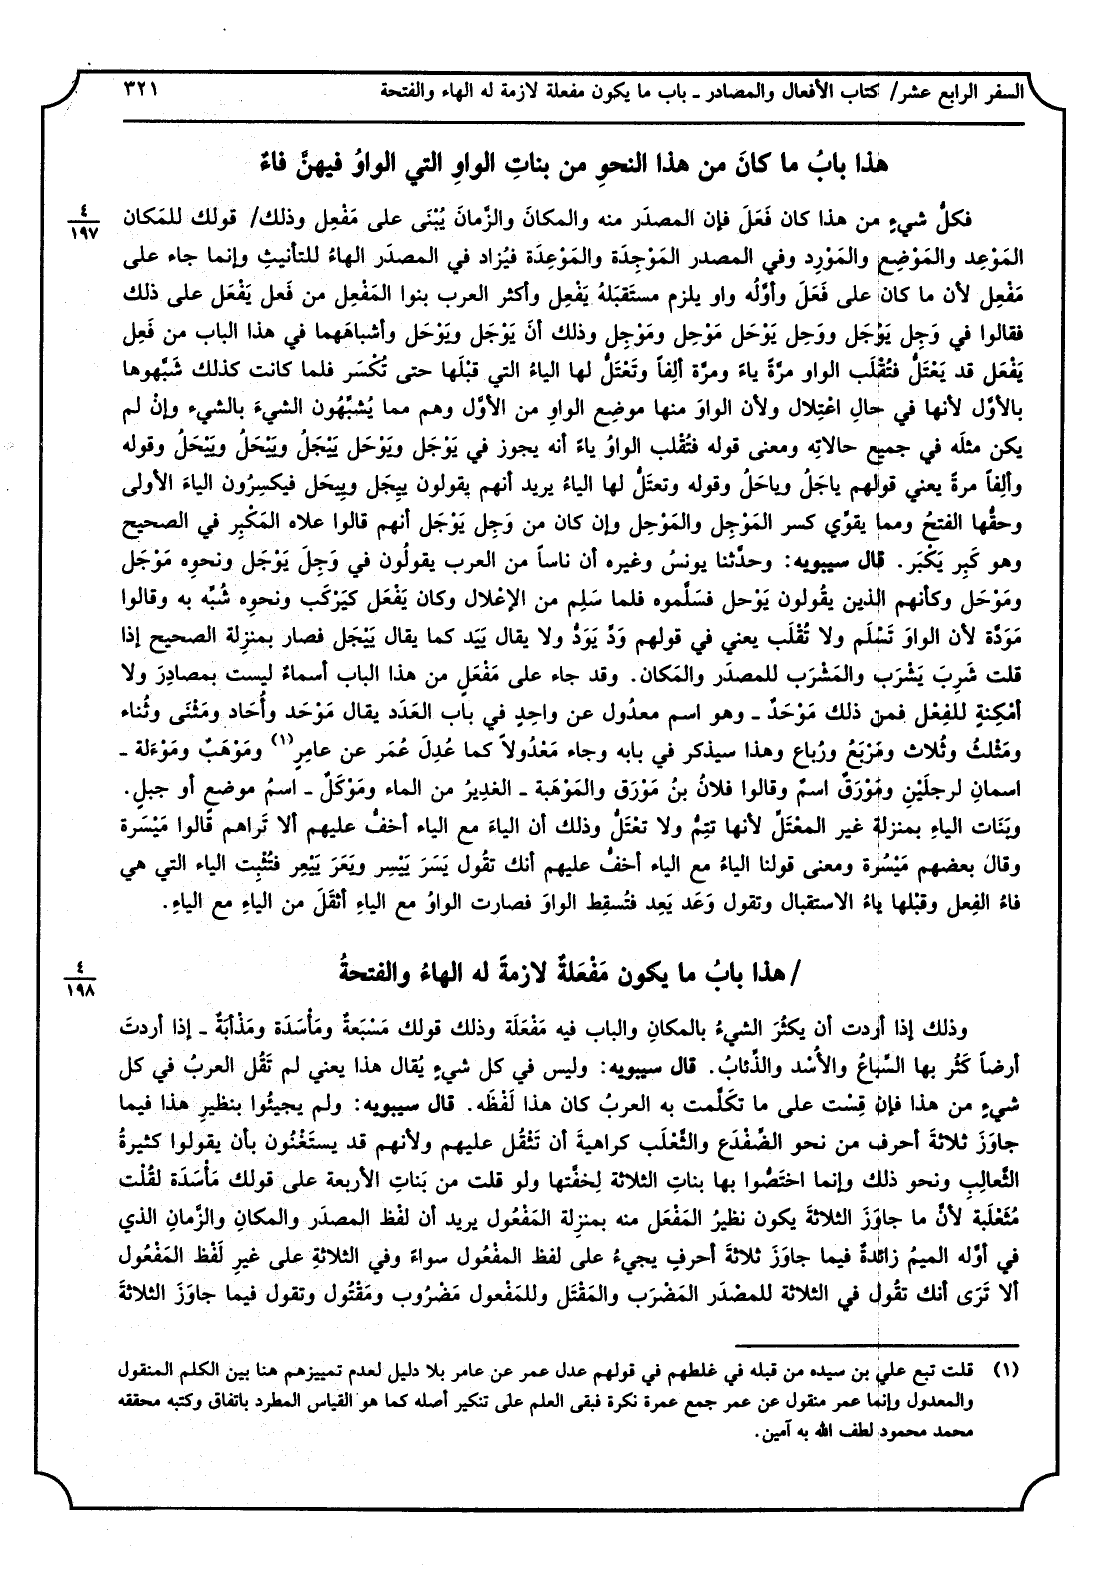 السفر الرابع عشر/ كتاب الأفعال والمصادر ـ باب ما يكون مفعلة لازمة له الهاء والفتحة
٣٢١
هذا بابُ ما كانَ من هذا النحوِ من بناتِ الواوِ التي الواوُ فيهنَّ فاءٌ
٤
١٩٧
فكلُّ شيءٍ من هذا كان فَعَلَ فإن المصدَر منه والمكانَ والزَّمانَ يُبْنَى على مَفْعِل وذلك/ قولك للمَكان
المَوْعِد والمَوْضِع والمَوْرِد وفي المصدر المَوْجِدَة والمَوْعِدَة فيُزاد في المصدَر الهاءُ للتأنيثِ وإنما جاء على
مَفْعِل لأن ما كان على فَعَلَ وأوَّلُه واو يلزم مستَقبَلهُ يَفْعِل وأكثر العرب بنوا المَفْعِل من فَعل يَفْعَل على ذلك
فقالوا في وَجِل يَوْجَل ووَحِل يَوْحَل مَوْحِل ومَوْجِل وذلك أنَ يَوْجَل ويَوْحَل وأشباهَهما في هذا الباب من فَعِل
يَفْعَل قد يَعْتَلُّ فتُقْلَب الواو مرَّةً ياءً ومرة ألِفاً وتَعْتَلُّ لها الياءُ التي قبْلَها حتى تُكْسَر فلما كانت كذلك شَبَّهوها
بالأوَّل لأنها في حالِ اعْتِلال ولأن الواوَ منها موضِع الواوِ من الأوَّل وهم مما يُشبَّهُون الشيءَ بالشيء وإنْ لم
يكن مثلَه في جميع حالاتِه ومعنى قوله فتُقْلب الواوُ ياءً أنه يجوز في يَوْجَل ويَوْحَل يَيْجَلُ ويَيْحَلُ ويَيْحَلُ وقوله
وألِفاً مرةً يعني قولهم ياجَلُ وياحَلُ وقوله وتعتَلُّ لها الياءُ يريد أنهم يقولون يِيجَل ويِيحَل فيكسِرُون الياءَ الأولى
وحقُّها الفتحُ ومما يقوِّي كسر المَوْجِل والمَوْحِل وإن كان من وَجِل يَوْجَل أنهم قالوا علاه المَكْبِر في الصحيح
وهو كَبِر يَكْبَر. قال سيبويه: وحدَّثنا يونسُ وغيره أن ناساً من العرب يقولُون في وَجِلَ يَوْجَل ونحوه مَوْجَل
ومَوْحَل وكأنهم الذين يقُولون يَوْحل فسَلَّموه فلما سَلِم من الإعْلال وكان يَفْعَل كيَرْكَب ونحوِه شُبَّه به وقالوا
مَوَدَّة لأن الواوَ تَسْلَم ولا تُقْلَب يعني في قولهم وَدَّ يَوَدُّ ولا يقال يَيَد كما يقال يَيْجَل فصار بمنزِلة الصحيح إذا
قلت شَرِبَ يَشْرَب والمَشْرَب للمصدَر والمَكان. وقد جاء على مَفْعَلٍ من هذا الباب أسماءٌ ليست بمصادِرَ ولا
أمْكِنةٍ للفِعْل فمن ذلك مَوْحَدٌ ـ وهو اسم معدُول عن واحِدٍ في باب العَدَد يقال مَوْحَد وأُحَاد ومَثْنَى وثُناء
ومَثْلثُ وثُلاث ومَرْبَعُ ورُباع وهذا سيذكر في بابه وجاء مَعْدُولاً كما عُدِلَ عُمَر عن عامِرٍ(١) ومَوْهَبٌ ومَوْءَلة ـ
اسمانِ لرجلَيْنِ ومَوْرَقٌ اسمٌ وقالوا فلانُ بنُ مَوْرَق والمَوْهَبة ـ الغدِيرُ من الماء ومَوْكَلٌ ـ اسمُ موضعٍ أو جبلٍ.
وبَنَات الياءِ بمنزلةِ غير المعْتَلِّ لأنها تتِمُّ ولا تعْتَلُّ وذلك أن الياءَ مع الياء أخفُّ عليهم ألا تَراهم قالُوا مَيْسَرة
وقال بعضهم مَيْسُرة ومعنى قولنا الياءُ مع الياء أخفُّ عليهم أنك تقُول يَسَرَ يَيْسِر ويَعَرَ يَيْعِر فتُثْبِت الياء التي هي
فاءُ الفِعل وقبْلها ياءُ الاستقبال وتقول وَعَد يَعِد فتُسقِط الواوَ فصارت الواوُ مع الياءِ أثقَلَ من الياءِ مع الياءِ.
/ هذا بابُ ما يكون مَفْعَلةٌ لازمةً له الهاءُ والفتحةُ
٤
١٩٨
وذلك إذا أردت أن يكثُرَ الشيءُ بالمكانِ والباب فيه مَفْعَلَة وذلك قولك مَسْبَعةٌ ومَأْسَدَة ومَذْأَبَةٌ ـ إذا أردتَ
أرضاً كَثُر بها السِّباعُ والأُسْد والذِّئابُ. قال سيبويه: وليس في كل شيءٍ يُقال هذا يعني لم تَقُل العربُ في كل
شيءٍ من هذا فإن قِسْت على ما تكَلَّمت به العربُ كان هذا لَفْظَه. قال سيبويه: ولم يجيئُوا بنظيرِ هذا فيما
جاوَزَ ثلاثةَ أحرف من نحو الضَّفْدَع والثَّعْلَب كراهيةَ أن تَثْقُل عليهم ولأنهم قد يستَغْنُون بأن يقولوا كثيرةُ
الثَّعالبِ ونحو ذلك وإنما اختَصُّوا بها بناتِ الثلاثة لِخفَّتها ولو قلت من بَناتِ الأربعة على قولك مَأْسَدَة لقُلْت
مُثَعْلَبة لأنَّ ما جاوَزَ الثلاثةَ يكون نظيرُ المَفْعَل منه بمنزلة المَفْعُول يريد أن لفْظ المصدَر والمكانِ والزَّمانِ الذي
في أوَّله الميمُ زائدةٌ فيما جاوَزَ ثلاثةَ أحرفٍ يجيءُ على لفظ المفْعُول سواءً وفي الثلاثةِ على غيرِ لَفْظ المَفْعُول
ألا تَرَى أنك تقُول في الثلاثة للمصْدَر المَضْرَب والمَقْتَل وللمَفْعول مَضْرُوب ومَقْتُول وتقول فيما جاوَزَ الثلاثةَ
(١) قلت تبع علي بن سيده من قبله في غلطهم في قولهم عدل عمر عن عامر بلا دليل لعدم تمييزهم هنا بين الكلم المنقول
والمعدول وإنما عمر منقول عن عمر جمع عمرة نكرة فبقى العلم على تنكير أصله كما هو القياس المطرد باتفاق وكتبه محققه
محمد محمود لطف الله به آمين.